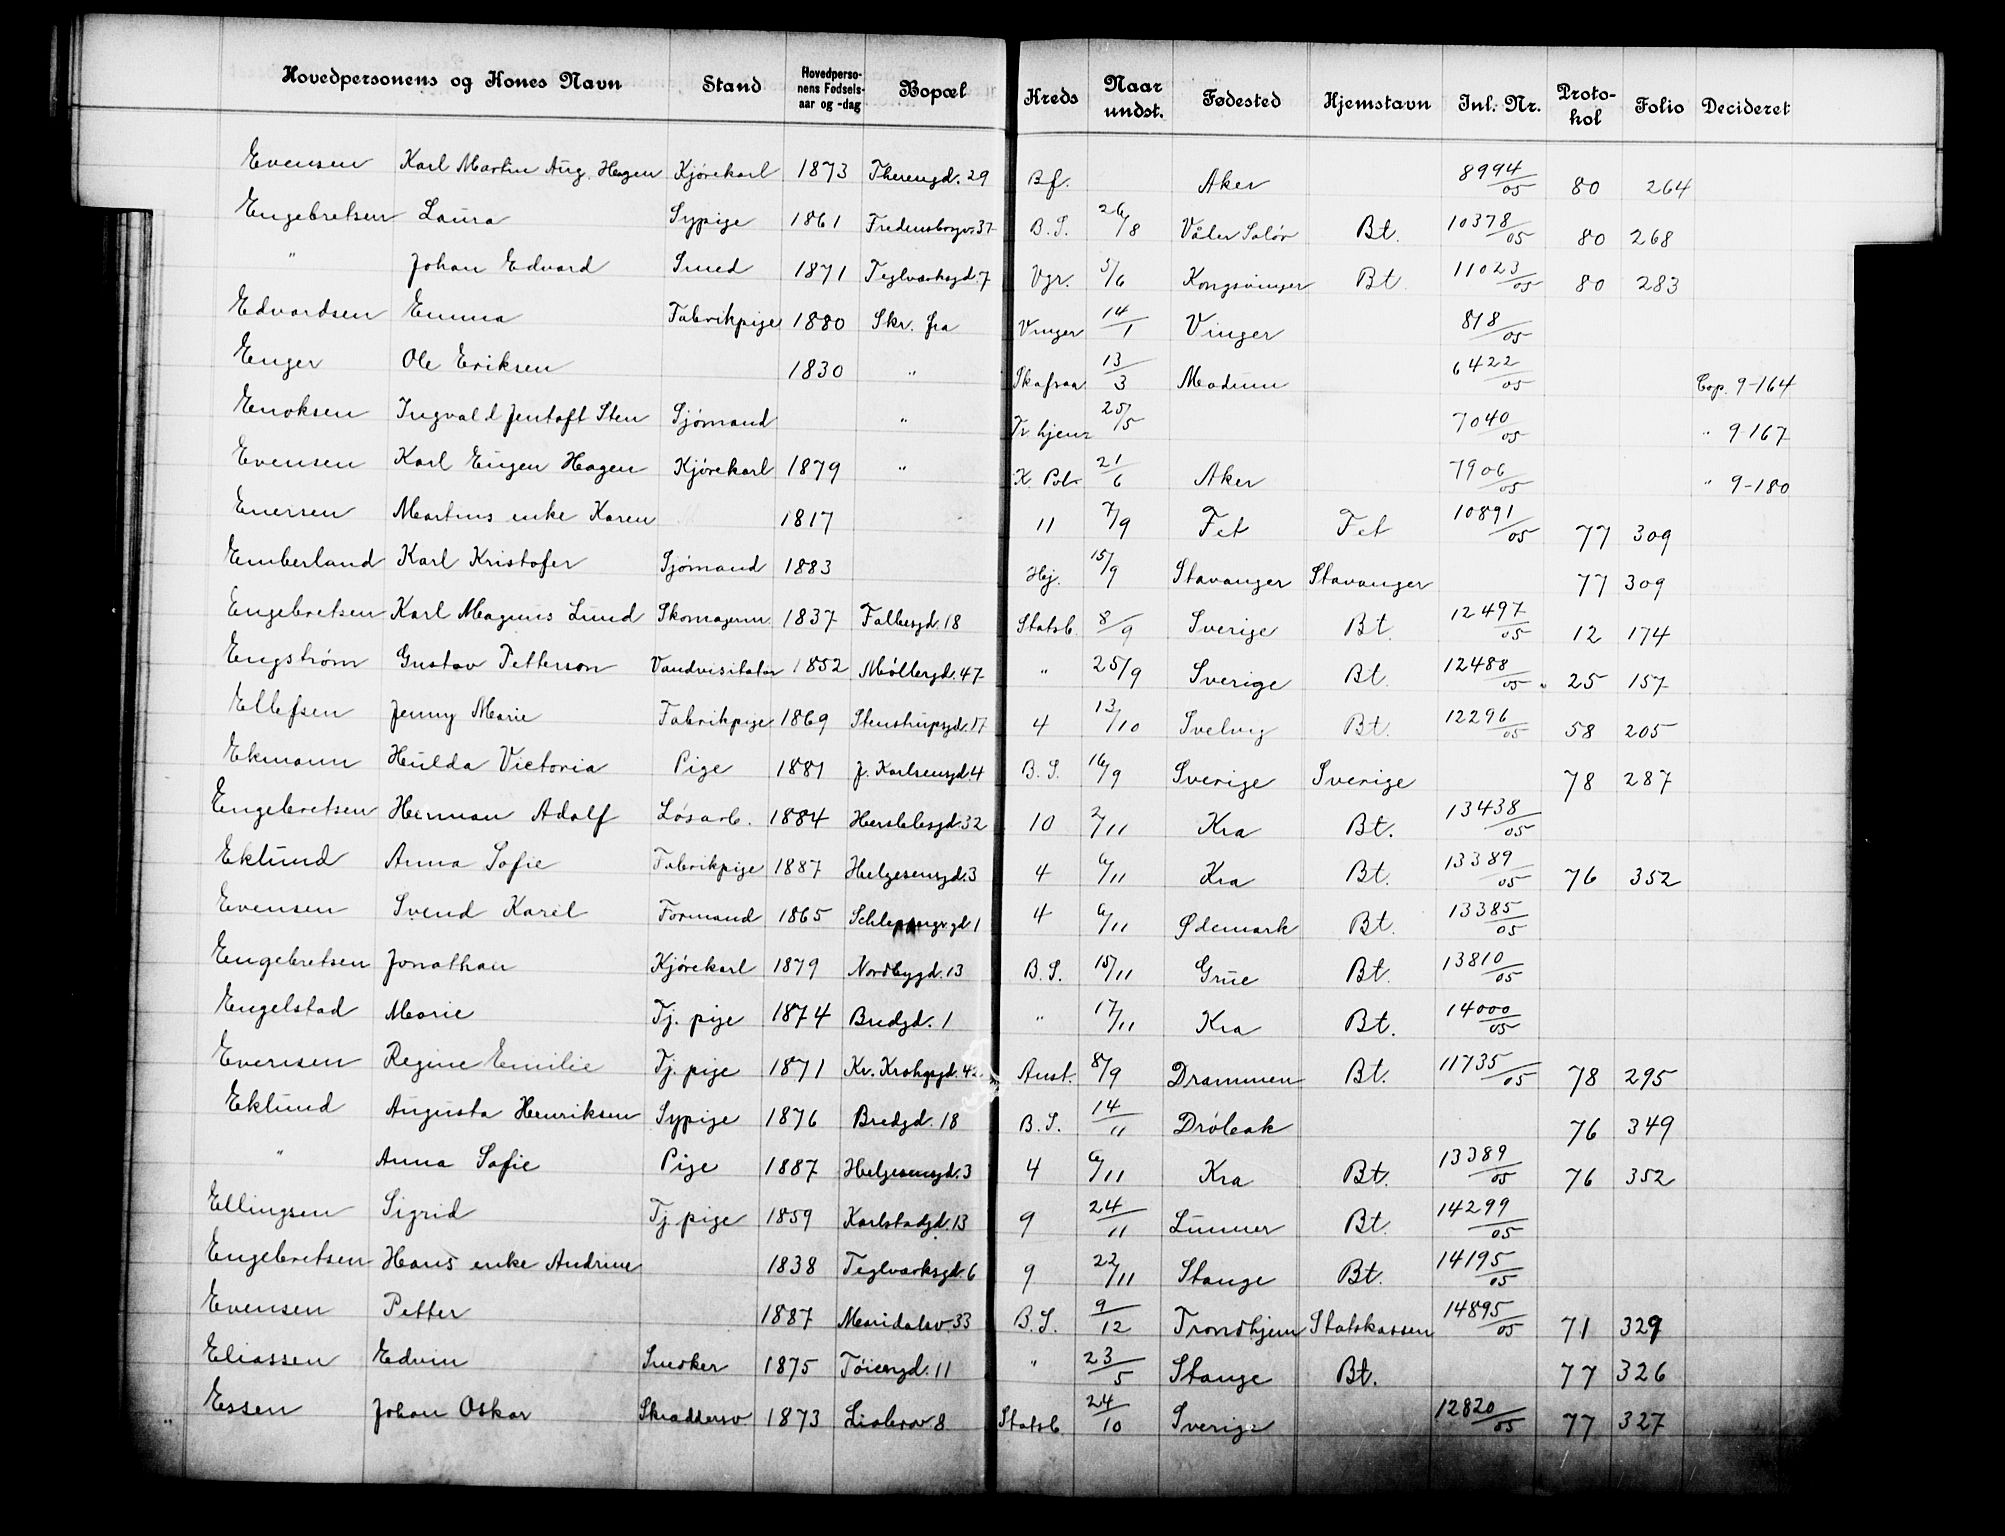 Hovedpersonens og Kones Navn Stand Hovedpersonens Fødselsaar og -dag Bopæl Kreds Naar undst. Fødested Hjemstavn Inl. Nr. Protokol Folio Decideret
Evensen Karl Martin Aug. Hagen Kjørekarl 1873 Therengd. 29 Bf. Aker 8994/05 80 264
Engebretsen Laura Sypige 1861 Fredensborgv. 37 B. S. 26/8 Våler Solør Bt. 10378/05 80 268
" Johan Edvard Smed 1871 Teglværksgd. 7 Vgr. 5/6 Kongsvinger Bt. 11023/05 80 283
Edvardsen Emma Fabrikpige 1880 Skr. fra Vinger 14/1 Vinger 818/05
Enger Ole Eriksen 1830 " Skafsaa 13/3 Modum 6422/05 Cop. 9-164
Enoksen Ingvald Jentoft Sten Sjømand " Tr.hjem 25/5 7040/05 " 9-167
Evensen Karl Eugen Hagen Kjørekarl 1879 " K. Pol. 21/6 Aker 7906/05 " 9-180
Enersen Martins enke Karen 1817 11 7/9 Fet Fet 10891/05 77 309
Emberland Karl Kristofer Sjømand 1883 Hej. 15/9 Stavanger Stavanger 77 309
Engebretsen Karl Magnus Lund Skomagerm. 1837 Falbesgd. 18 Statsb. 8/9 Sverige Bt. 12497/05 12 174
Engstrøm Gustav Petterson Vandvisitatør 1852 Møllergd. 47 " 25/9 Sverige Bt. 12488/05 25 157
Ellefsen Jenny Marie Fabrikpige 1869 Stenstrupsgd. 17 4 13/10 Svelvig Bt. 12296/05 58 205
Ekmann Hulda Victoria Pige 1881 J. Karlsensgd. 4 B. S. 16/9 Sverige Sverige 78 287
Engebretsen Herman Adolf Løsarb. 1884 Herslebsgd. 32 10 2/11 Kra Bt. 13438/05
Eklund Anna Sofie Fabrikpige 1887 Helgesensgd. 3 4 6/11 Kra Bt. 13389/05 76 352
Evensen Svend Karel Formand 1865 Schleppegrgd 1 4 6/11 Ødemark Bt. 13385/05
Engebretsen Jonathan Kjørekarl 1879 Nordbygd. 13 B. S. 15/11 Grue Bt. 13810/05
Engelstad Marie Tj. pige 1874 Bredgd. 1 " 17/11 Kra Bt. 14000/05
Evensen Regine Emilie Tj. pige 1871 Kr. Krohgsgd. 42 Anst. 8/9 Drammen Bt. 11735/05 78 295
Eklund Augusta Henriksen Sypige 1876 Bredgd. 18 B. S. 14/11 Drøbak 76 349
" Anna Sofie Pige 1887 Helgesensgd. 3 4 6/11 Kra Bt. 13389/05 76 352
Ellingsen Sigrid Tj. pige 1859 Karlstadgd. 13 9 24/11 Lunner Bt. 14299/05
Engebretsen Hans enke Andrine 1838 Teglværksgd. 6 9 22/11 Stange Bt. 14195/05
Evensen Petter 1887 Maridalsv. 33 B. S. 9/12 Trondhjem Statskassen 14895/05 71 329
Eliassen Edvin Snedker 1875 Tøiengd. 11 " 23/5 Stange Bt. 77 326
Essen Johan Oskar Skræddersv. 1873 Liabrov 8 Statsb. 24/10 Sverige 12820/05 77 327